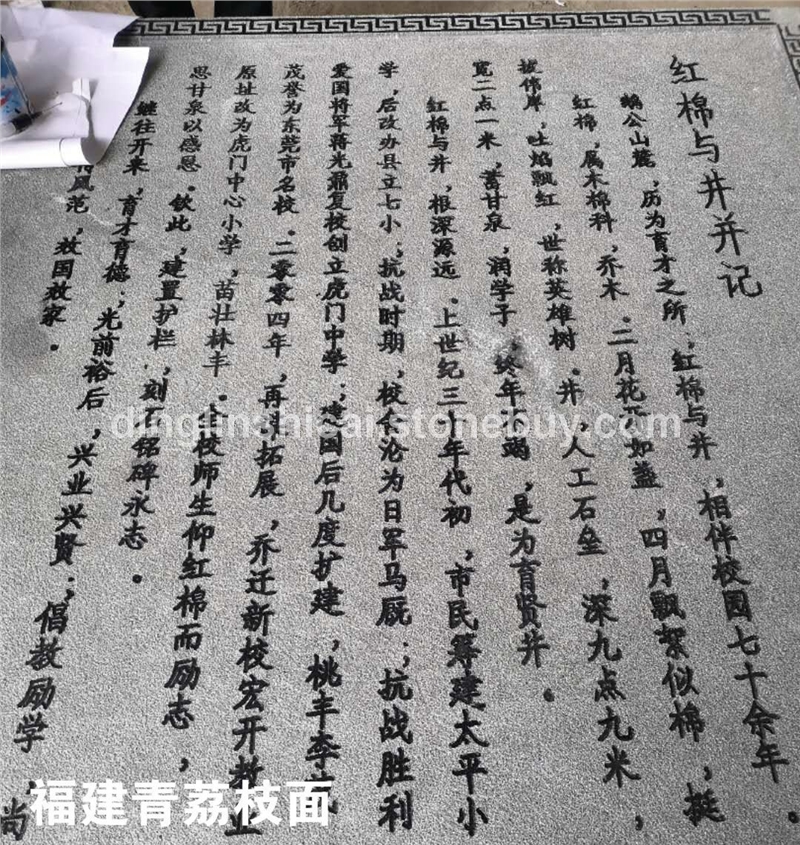 红棉与井并记
公山麓，历为育才之所；红棉与井，相伴校园七十余年。
红棉，属木棉科，乔木。二月花开如盏，四月飘絮似棉，挺
拔伟岸，吐焰飘红，世称英雄树。井，人工石垒，深九点九米，
宽二点一米，蓄甘泉，润学子，终年不竭，是为育贤井。
红棉与井，根深源远。上世纪三十年代初，市民筹建太平小
学，后改办县立七小；抗战时期，校舍沦为日军马厩；抗战胜利
爱国将军蒋光鼐复校创立虎门中学；建国后几度扩建，桃丰李
茂誉为东莞市名校。二零零四年，再斗拓展，乔迁新校宏开教业
原址改为虎门中心小学，苗壮林丰。全校师生仰红棉而励志，
思甘泉以感恩。欽此，建置护栏，刻石铭碑永志。
继往开来，育才育德；光前裕后，兴业兴贤；倡教励学，尚
风范，效国效家。
dinglinshicai.stonebuy.com
福建青荔枝面